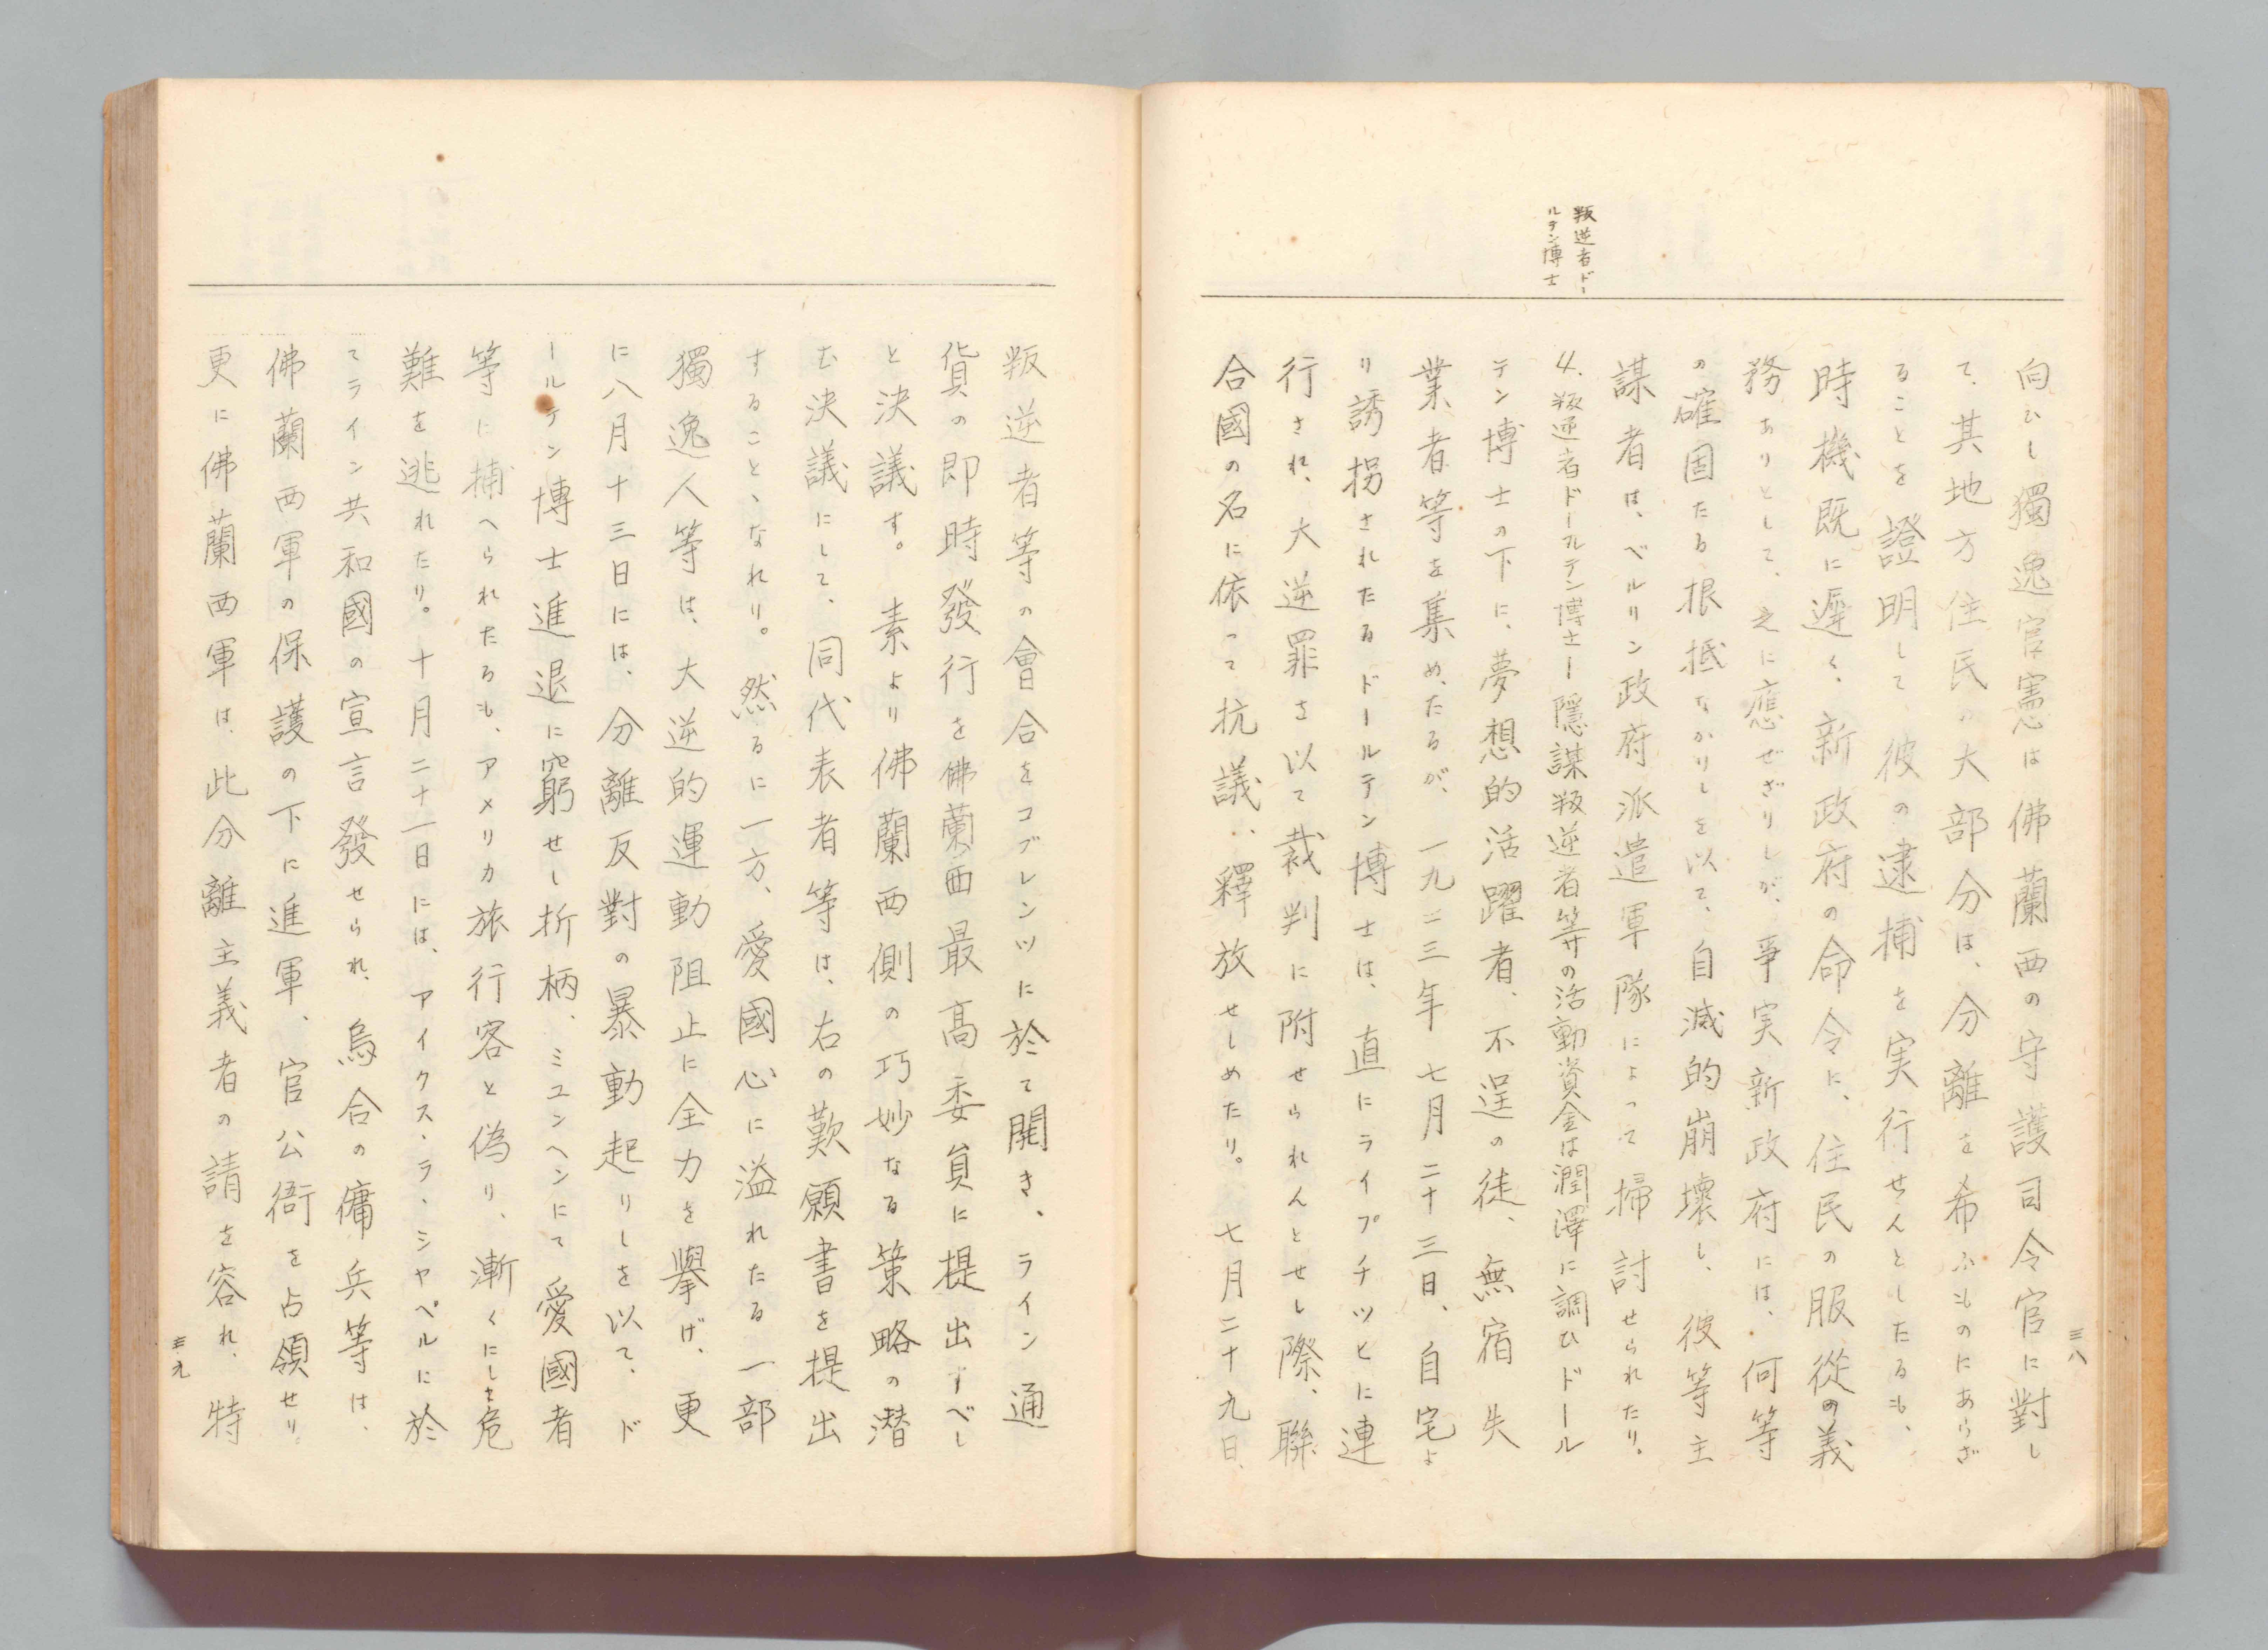 三八
叛逆者ドー
ルテン博士
向ひし獨逸官憲は佛蘭西の守護司令官に對し
て、其地方住民の大部分は、分離を希ふものにあらざ
ることを證明して彼の逮捕を実行せんとしたるも、
時機既に遲く、新政府の命令に、住民の服從の義
務ありとして、之に應ぜざりしが、爭実新政府には、何等
の確固たる根抵なかりしを以て、自滅的崩壞し、彼等主
謀者は、ベルリン政府派遣軍隊によって掃討せられたり。
4.叛逆者ドールテン博士ー隱謀叛逆者等の活動資金は潤澤に調ひドール
テン博士の下に、夢想的活躍者、不逞の徒、無宿失
業者等を集め、たるが、一九二三年七月二十三日、自宅よ
り誘拐されたるドールテン博士は、直にライプチツヒに連
行され、大逆罪を以て裁判に附せられんとせし際、聯
合國の名に依って抗議、釋放せしめたり。七月二十九日、
叛逆者等の會合をコブレンツに於て開き、ライン通
貨の即時發行を佛蘭西最高委員に提出すべし
と決議す。素より佛蘭西側の巧妙なる策略の潜
む決議にして、同代表者等は、右の歎願書を提出
すること、なれり。然るに一方、愛國心に溢れたる一部
獨逸人等は、大逆的運動阻止に全力を擧げ、更
に八月十三日には、分離反對の暴動起りしを以て、ド
ールテン博士進退に窮せし折柄、ミユンヘンにて愛國者
等に捕へられたるも、アメリカ旅行客と偽り、漸くにして危
難を逃れたり。十月二十一日には、アイクス・ラ・シヤペルに於
てライン共和國の宣言發せられ、烏合の傭兵等は、
佛蘭西軍の保護の下に進軍、官公衙を占領せり。
更に佛蘭西軍は、此分離主義者の請を容れ、特
三九